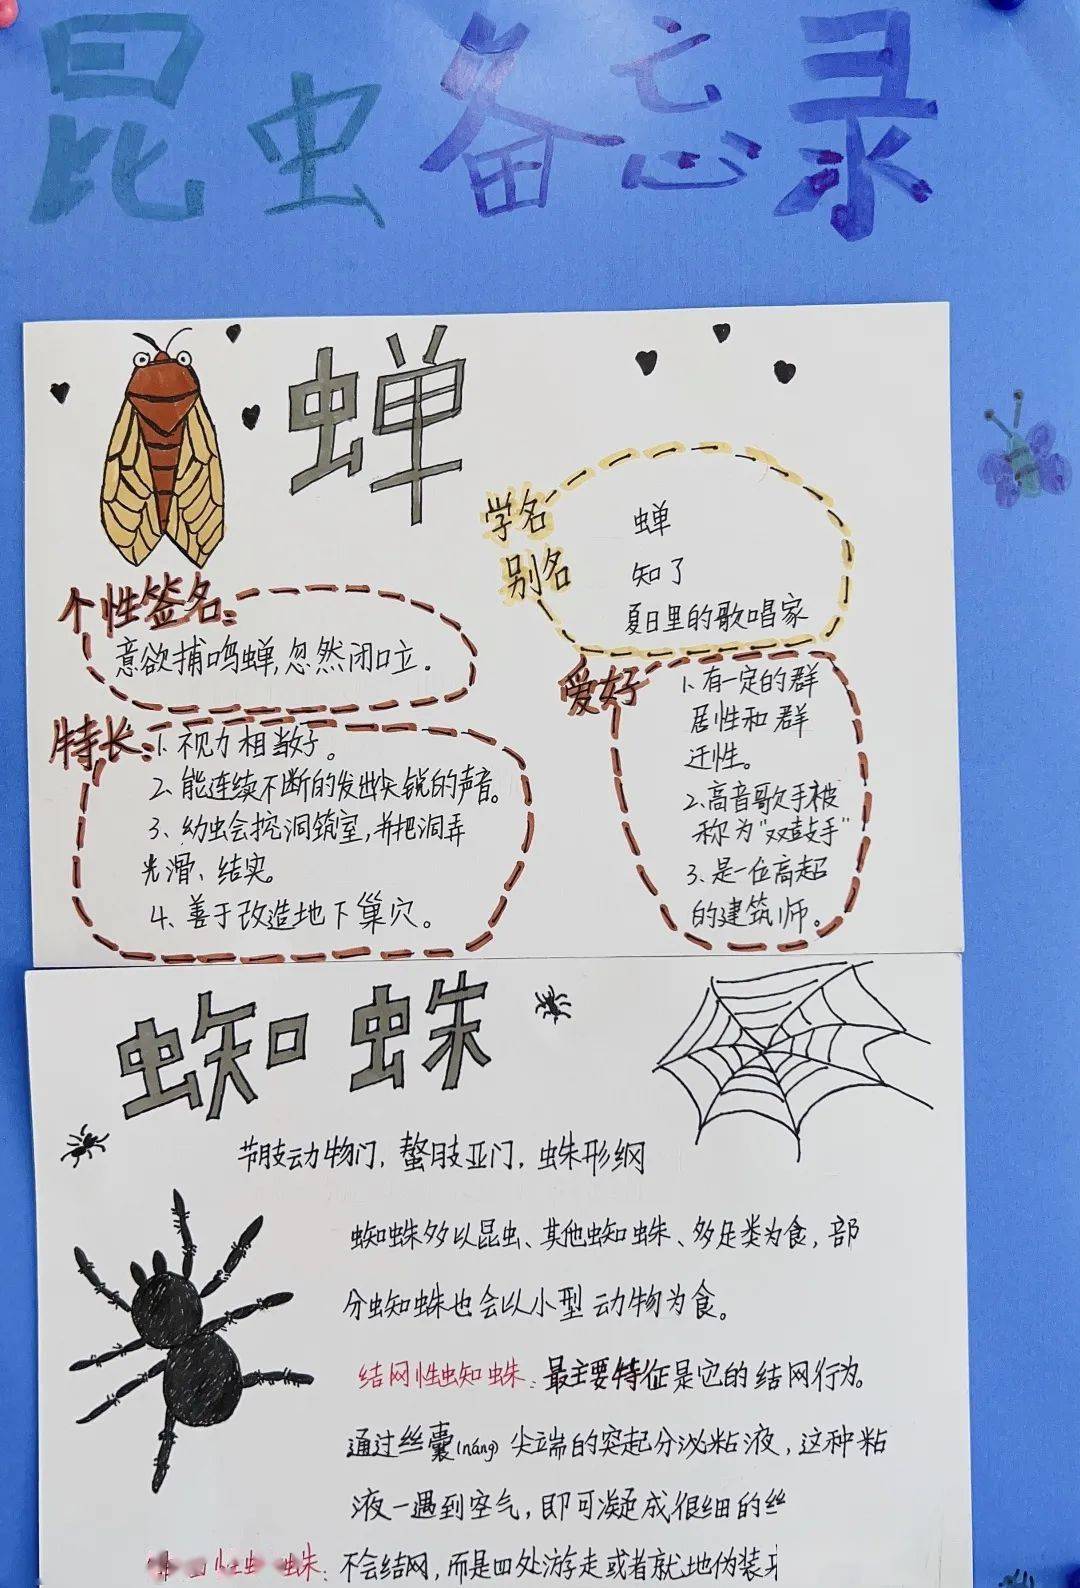 昆虫备忘录
蝉
学名
别名
蝉
知了
夏日里的歌唱家
个性签名:
意欲捕鸣蝉,忽然闭口立。
特长:
1、视力相当好。
2、能连续不断的发出尖锐的声音。
3、幼虫会挖洞筑室,并把洞弄
光滑、结实。
4、善于改造地下巢穴。
爱好
1、有一定的群
居性和群
迁性。
2、高音歌手被
称为"双鼓手"
3、是一位高超
的建筑师。
蜘蛛
节肢动物门,螯肢亚门,蛛形纲
蜘蛛多以昆虫、其他蜘蛛、多足类为食,部
分蜘蛛也会以小型动物为食。
结网性蜘蛛:最主要特征是它的结网行为。
通过丝囊(náng)尖端的突起分泌粘液,这种粘
液一遇到空气,即可凝成很细的丝
蛛:不会结网,而是四处游走或者就地伪装